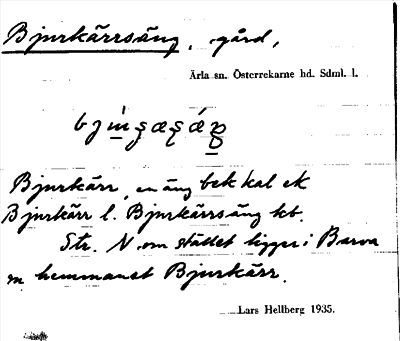 Bjurkärrsäng, gård,
Ärla sn. Österrekarne hd. Sdml. l.
Bjurkärr, en äng bek kal ek
Bjurkärr l. Bjurkärrsäng kb.
Str. N om stället ligger i Barva
en hemmanet Bjurkärr.
Lars Hellberg 1935.